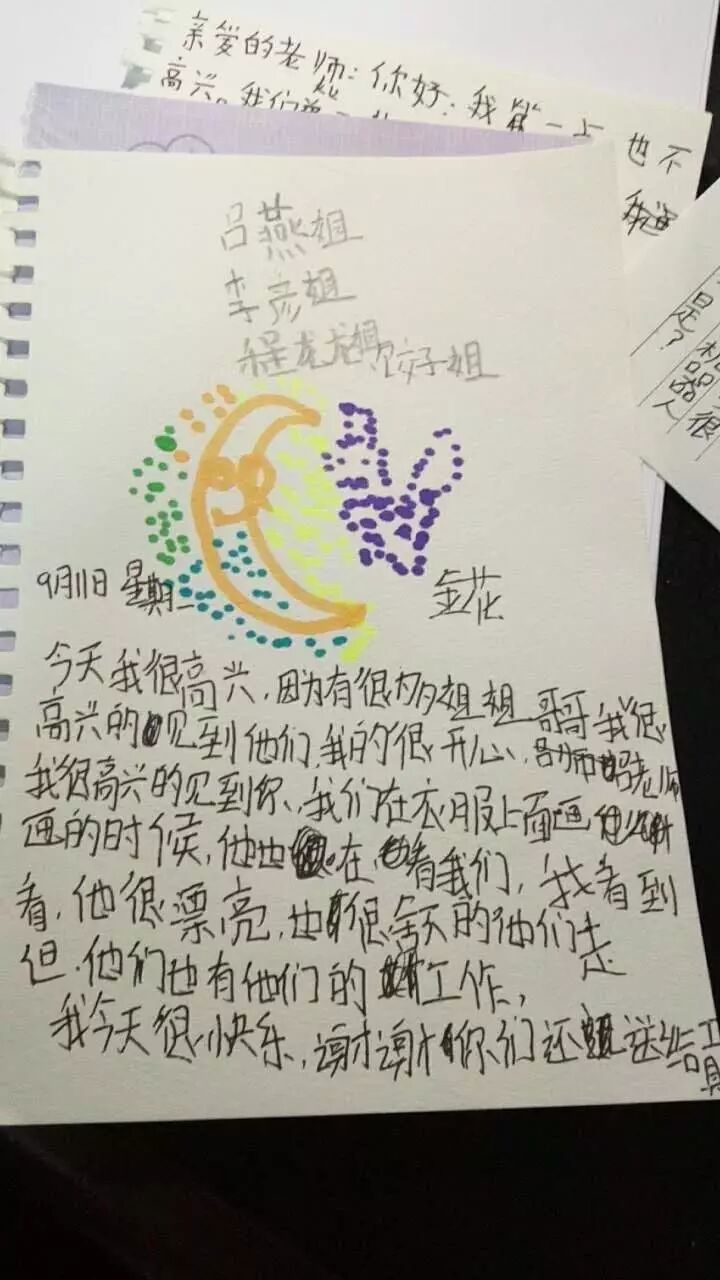 亲爱的老师：你好：我第一 也不
高兴。我们
是？
机器人很
吕燕姐
李彦姐
程龙龙姐 好姐
9月11日 星期一
金花
今天我很高兴，因为有很多姐姐哥哥我很
高兴的见到他们，我的很开心，老师
我很高兴的见到你、我们在衣服上面画
画的时候，他也在看我们，我看到
看，他很漂亮，也很 的他们走
但、他们也有他们的工作，
我今天很快乐，谢谢你们还送给